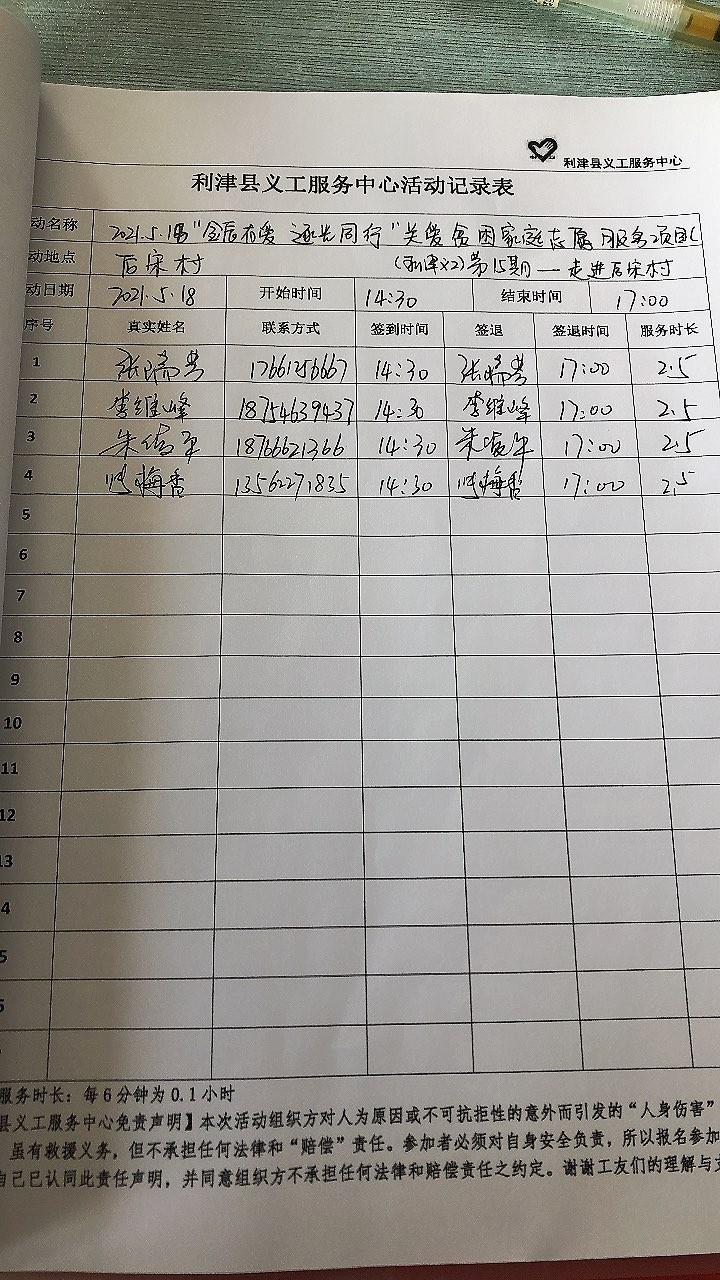 利津县义工服务中心
利津县义工服务中心活动记录表
动名称 2021.5.18 "金辰有爱 逐光同行"关爱贫困家庭志愿服务项目(
动地点 后宋村 (利津义工)第15期——走进后宋村
动日期 2021.5.18 开始时间 14:30 结束时间 17:00
序号 真实姓名 联系方式 签到时间 签退 签退时间 服务时长
1 17661256667 14:30 17:00 2.5
2 李维峰 18754639437 14:30 李维峰 17:00 2.5
3 18766621366 14:30 17:00 2.5
4 梅香 13562271835 14:30 梅香 17:00 2.5
5
6
7
8
9
10
11
12
13
4
5
6
服务时长：每6分钟为0.1小时
县义工服务中心免责声明】本次活动组织方对人为原因或不可抗拒性的意外而引发的"人身伤害"
虽有救援义务，但不承担任何法律和"赔偿"责任。参加者必须对自身安全负责，所以报名参加
自己已认同此责任声明，并同意组织方不承担任何法律和赔偿责任之约定。谢谢工友们的理解与支